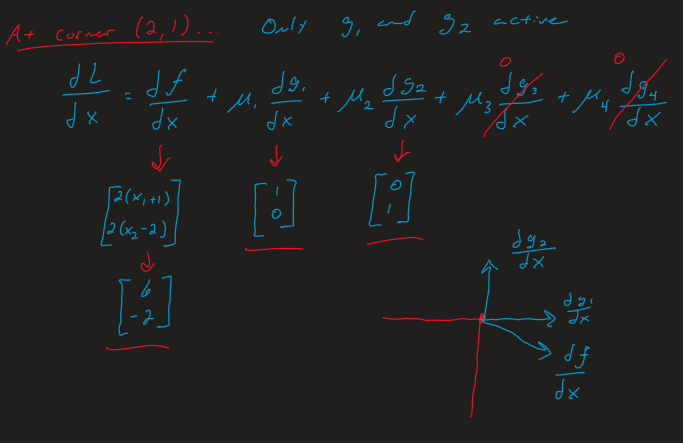 At corner (2,1)... Only g₁ and g₂ active
0 0
dL/dx = df/dx + μ₁ dg₁/dx + μ₂ dg₂/dx + μ₃ dg₃/dx + μ₄ dg₄/dx
[2(x₁+1) 2(x₂-2)] [1 0] [0 1]
[6 -2]
dg₂/dx
dg₁/dx
df/dx